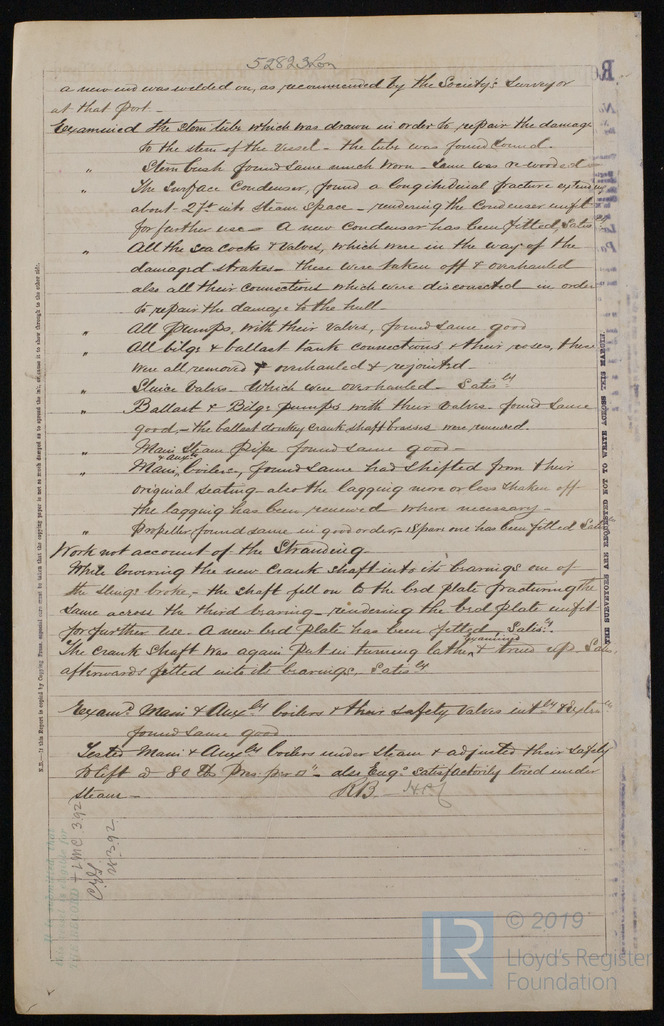 52823 Lon
a new end was welded on, as recommended by the Society's Surveyor
at that Port. —
Examined the stern tube which was drawn in order to repair the damage
to the stern of the vessel — the tube was found sound.
" Stern bush found same much worn — Same was rewooded —
" The Surface Condenser, found a longitudinal fracture extending
about 2 ft into Steam Space — rendering the Condenser unfit
for further use — A new Condenser has been fitted, Satis
" All the sea cocks & valves, which were in the way of the
damaged strakes — these were taken off & overhauled
also all their connections which were disconnected in order
to repair the damage to the hull —
" All pumps, with their valves, found same good
" All bilge & ballast tank connections & their roses, these
were all removed & overhauled & rejointed —
" Sluice Valves — Which were overhauled — Satis ly
" Ballast & Bilge pumps with their valves found same
good, — the ballast donkey crank shaft brasses were renewed.
" Main Steam pipe found same good —
" Main & aux ly boilers, found same had shifted from their
original seating — also the lagging more or less shaken off
the lagging has been renewed where necessary —
" Propeller, found same in good order, — 1 Spare one has been fitted Satis
Work not account of the Stranding —
While lowering the new crank shaft into its bearings one of
the slings broke, — the shaft fell on to the bed plate fracturing the
same across the third bearing — rendering the bed plate unfit
for further use. A new bed plate has been fitted Satis ly.
The crank shaft was again put in turning lathe, examined & trued up. Satis
afterwards fitted into its bearings. Satis ly
Exam d Main & Aux ly boilers & their safety valves int ly & ext
found same good
Tested Main & Aux ly boilers under steam & adjusted their safety
to lift at 80 lbs pres. per □" — also Eng s satisfactorily tried under
steam —
RB
LMC 3.92
28.3.92
THE SURVEYORS ARE REQUESTED NOT TO WRITE ACROSS THIS MARGIN.
N.B.—As this Report is copied by Copying Press, especial care must be taken that the copying paper is not so much damped as to spread the ink, or cause it to show through to the other side.
LR
© 2019
Lloyd's Register
Foundation